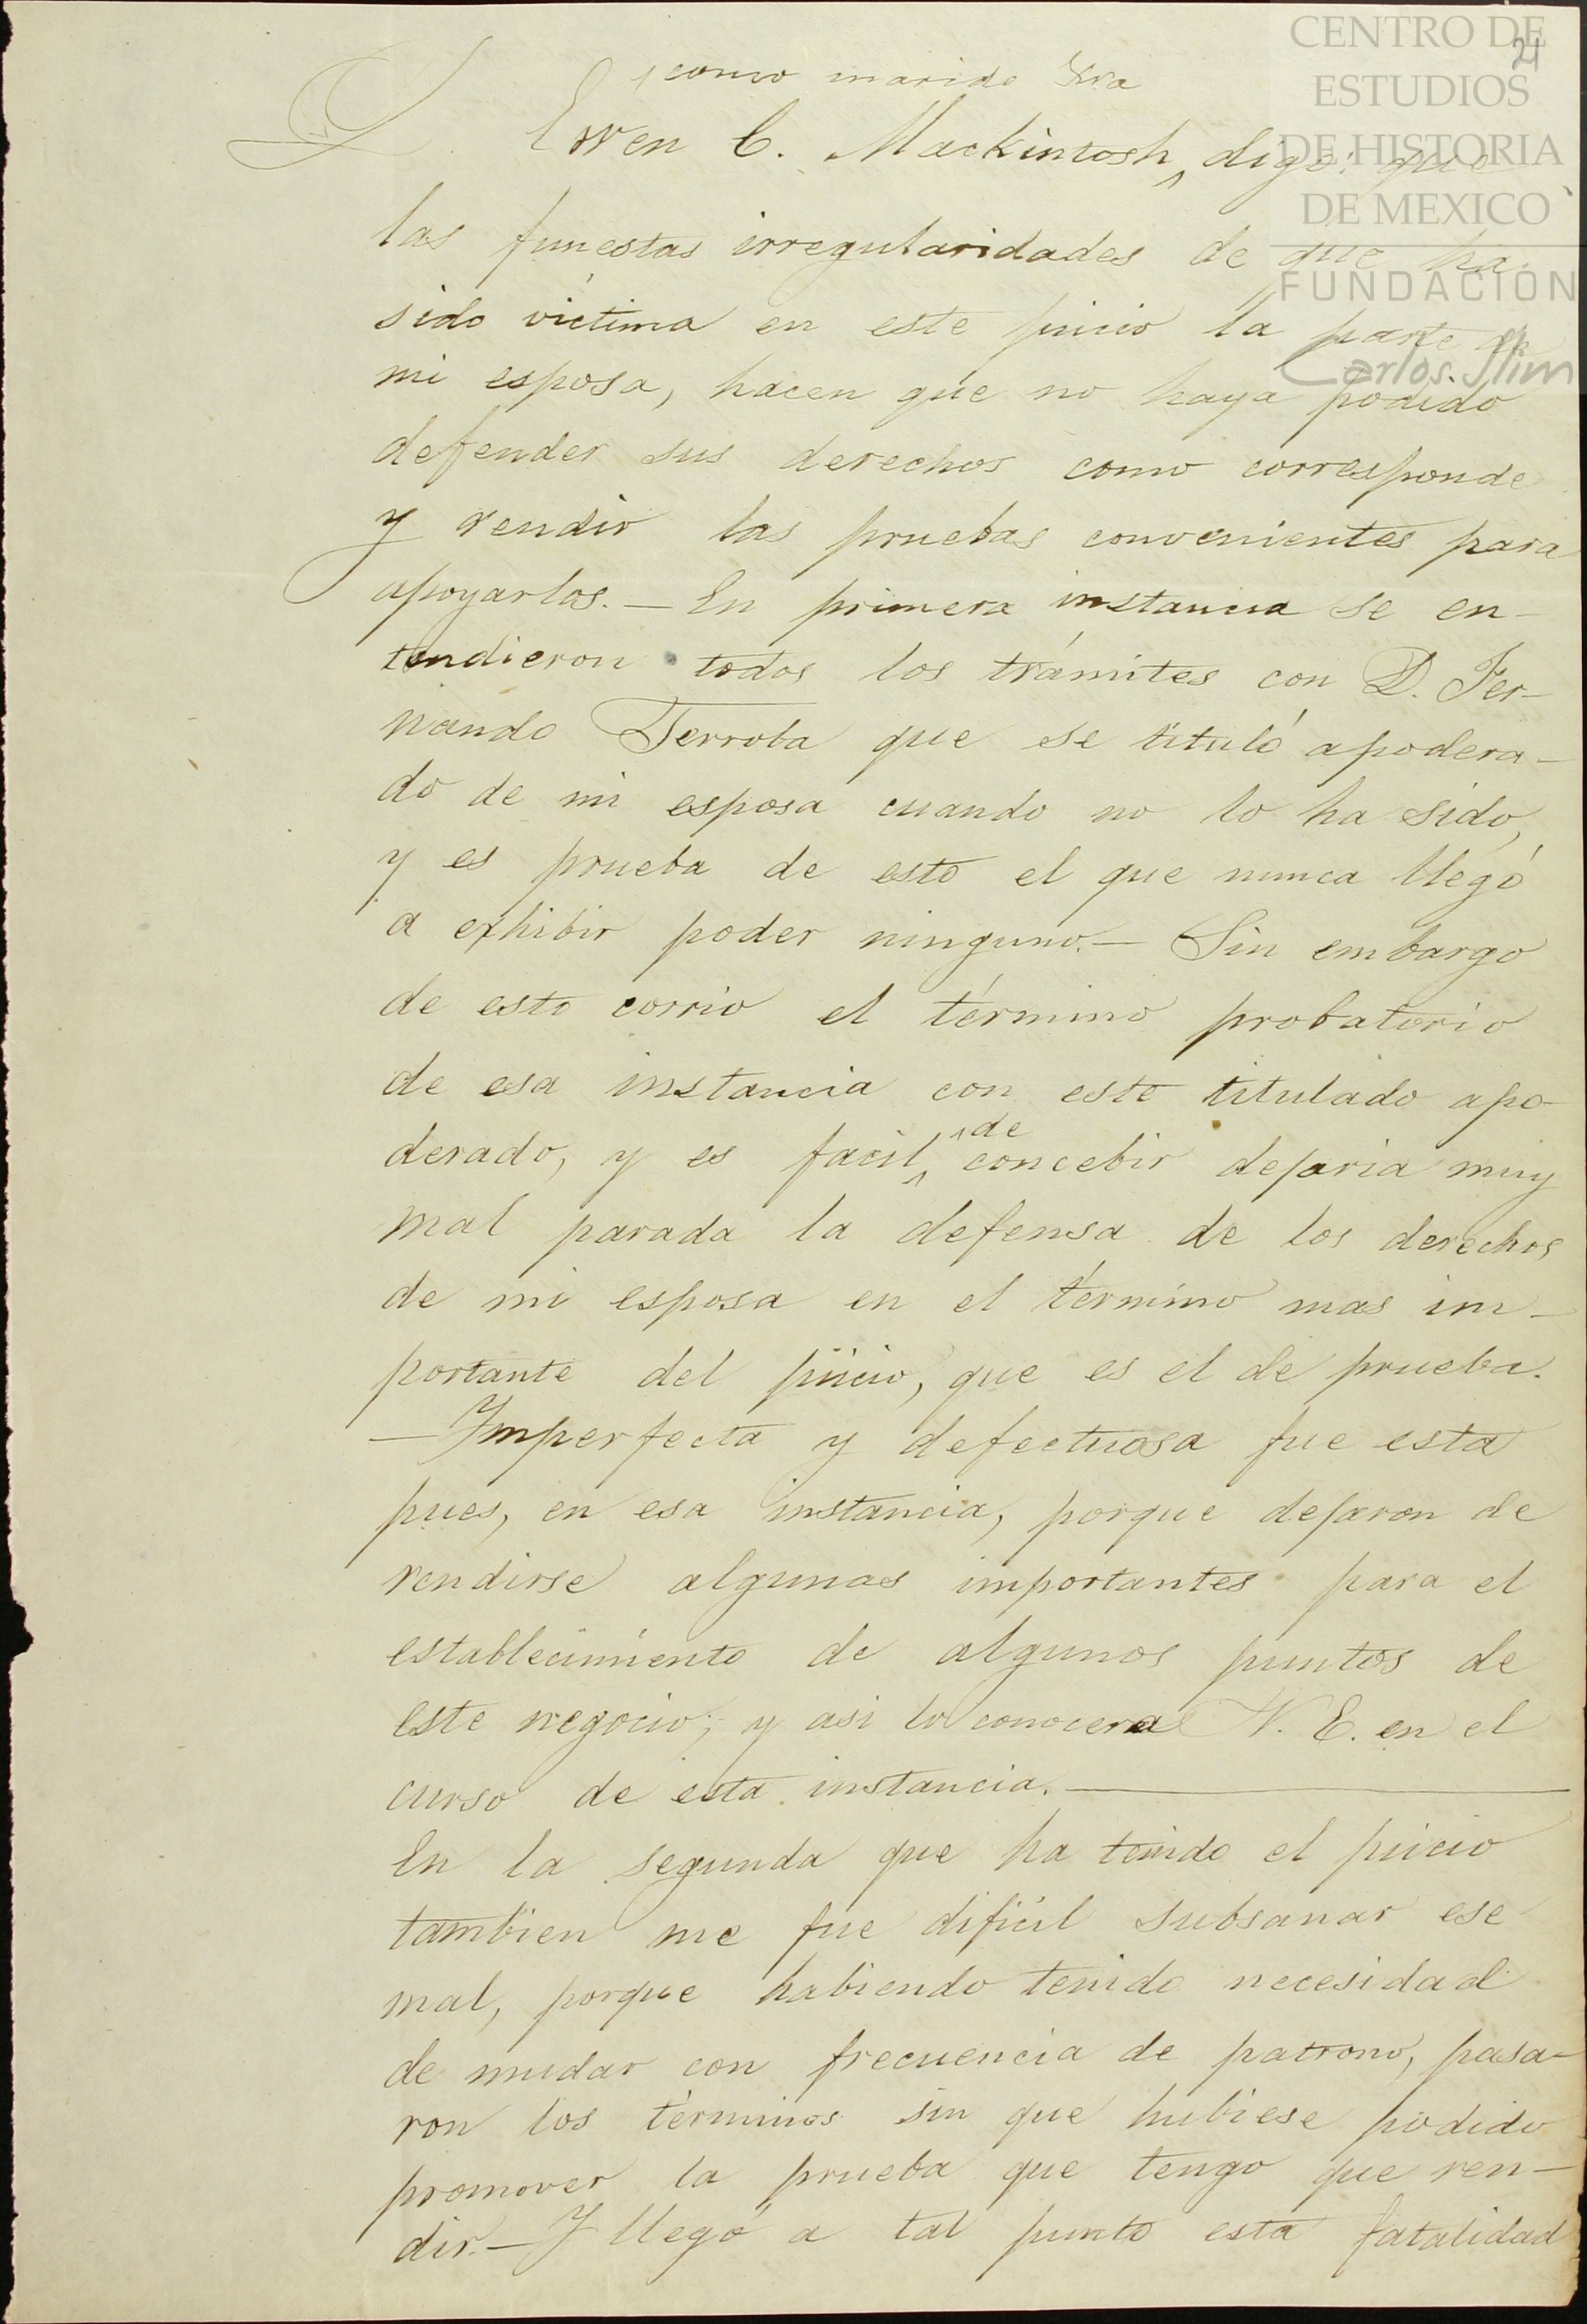 CENTRO DE
ESTUDIOS
DE HISTORIA
DE MEXICO
FUNDACIÓN
Carlos Slim
21
como marido &ra
Ewen C. Mackintosh, digo: que
las funestas irregularidades de que ha
sido victima en este juicio la parte de
mi esposa, hacen que no haya podido
defender sus derechos como corresponde
y rendir las pruebas convenientes para
apoyarlos. — En primera instancia se en-
tendieron todos los trámites con D. Fer-
nando Terroba que se tituló apodera-
do de mi esposa cuando no lo ha sido,
y es prueba de esto el que nunca llegó
a exhibir poder ninguno. — Sin embargo
de esto corrio el término probatorio
de esa instancia con este titulado apo-
derado, y es facil de concebir dejaria muy
mal parada la defensa de los derechos
de mi esposa en el término mas im-
portante del juicio, que es el de prueba.
— Imperfecta y defectuosa fue esta
pues, en esa instancia, porque dejaron de
rendirse algunas importantes para el
establecimiento de algunos puntos de
este negocio; y asi lo conocera V. E. en el
curso de esta instancia. —
En la segunda que ha tenido el juicio
tambien me fue dificil subsanar ese
mal, porque habiendo tenido necesidad
de mudar con frecuencia de patrono, pasa-
ron los términos sin que hubiese podido
promover la prueba que tengo que ren-
dir. — Y llegó a tal punto esta fatalidad